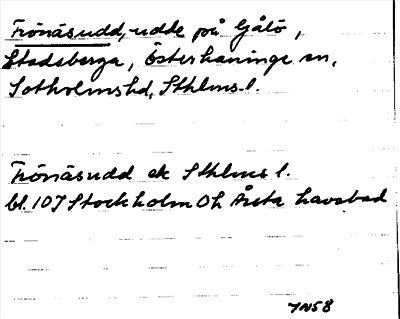 Frönäsudd, udde på Gålö,
Stadsberga, Österhaninge sn,
Sotholms hd, Sthlms l.
Frönäsudd ek Sthlms l.
bl. 10J Stockholm Oh Årsta havsbad
JN58